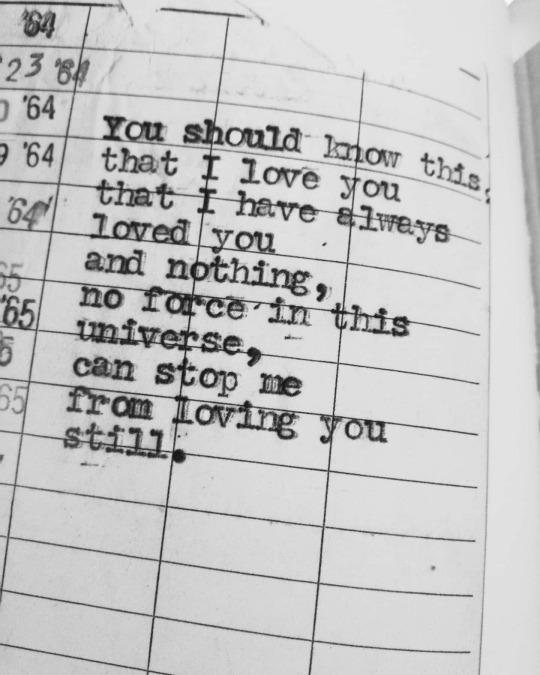 '64
23 '64
'64
9 '64
'64
You should know this,
that I love you
that I have always
loved you
and nothing,
no force in this
universe,
can stop me
from loving you
still.
65
'65
5
65